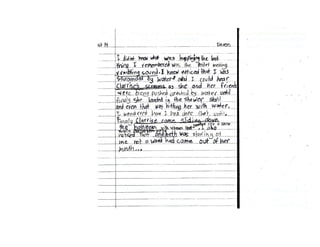 I didnt know what was happening the last
thing I remembered was the toilet making
rumbling sound. I knew noticed that I was
surrounded by water and I could hear
Clarisse's screams as she and her friends
were being pushed around by water until
finaly she landed in the shower stall
and even that was hitting her with water.
I wondered how I had done that until
finally Clarisse came sliding down
the
noticed that Annabeth was staring at
me not a word had came out of her
mouth...